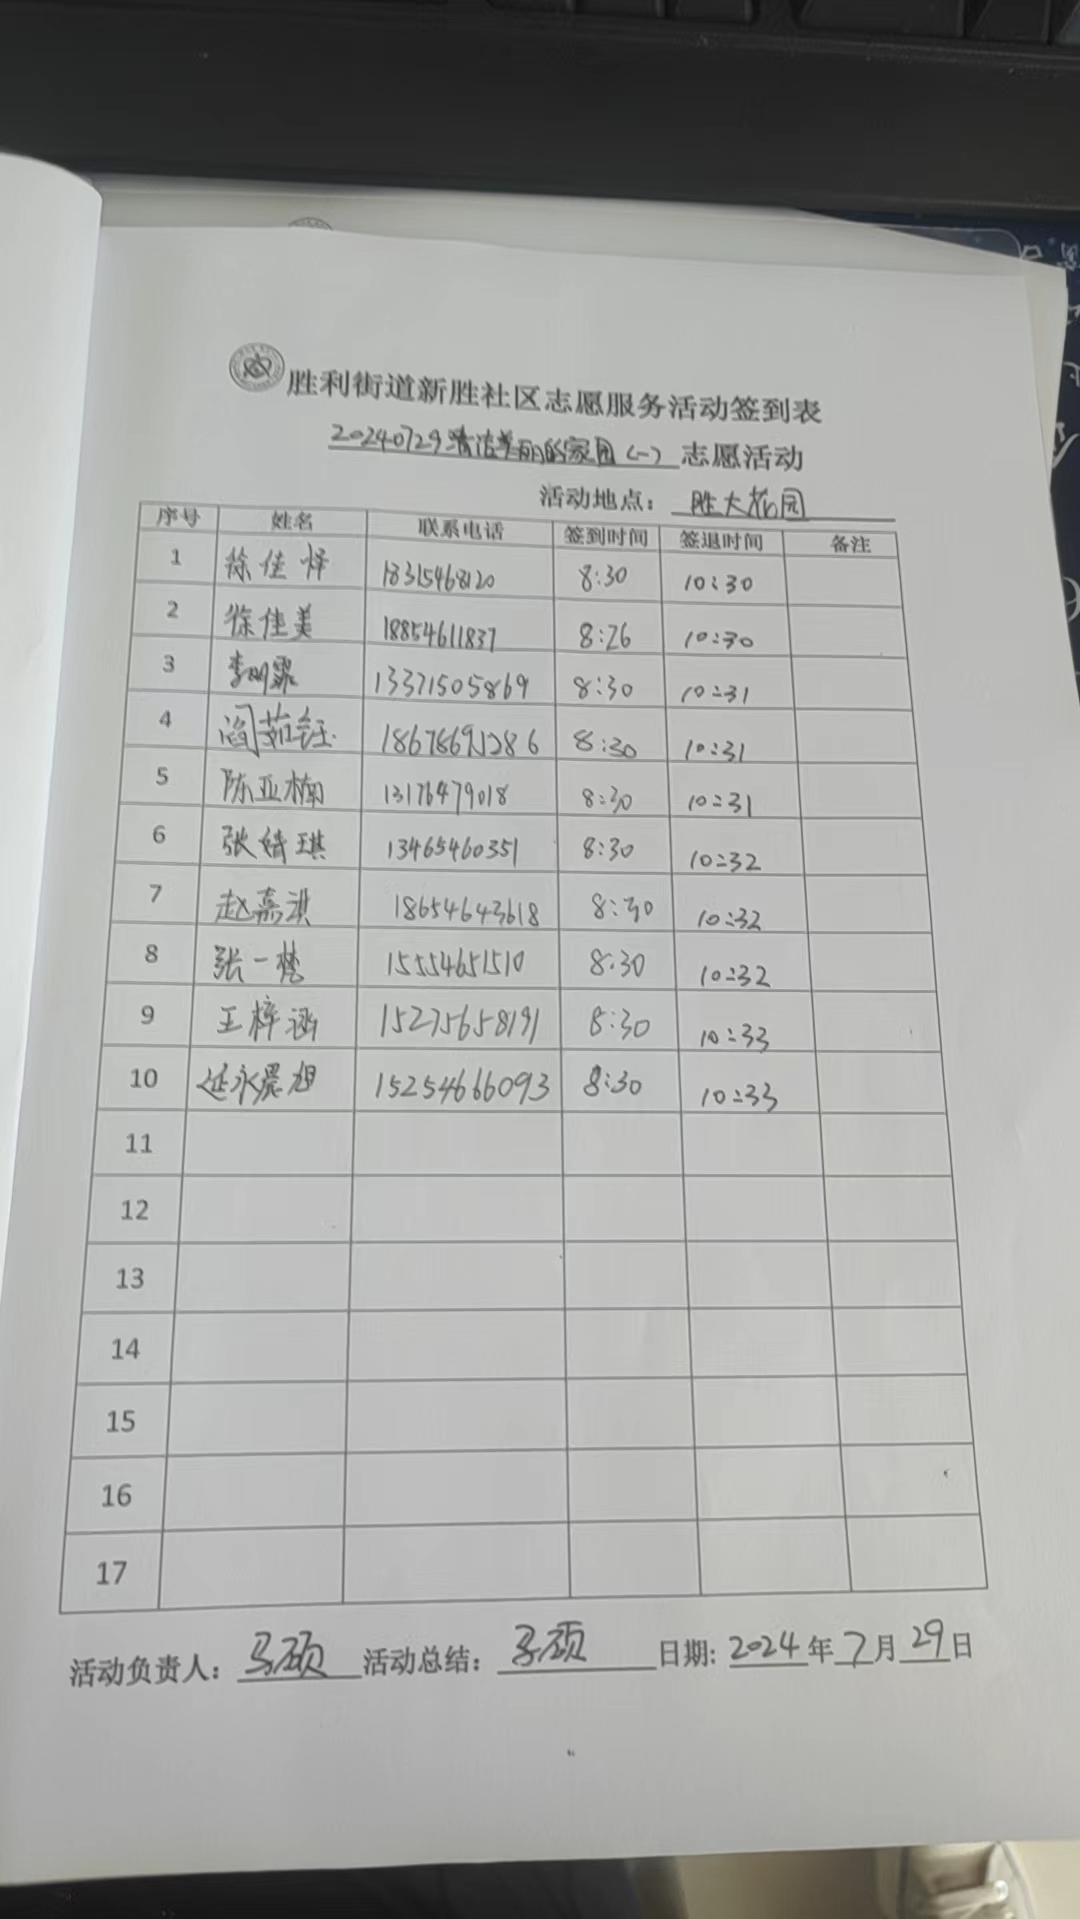 胜利街道新胜社区志愿服务活动签到表
20240729清洁美丽的家园(一)志愿活动
活动地点: 胜大花园
序号 姓名 联系电话 签到时间 签退时间 备注
1 徐佳怿 18315468120 8:30 10:30
2 徐佳美 18854611837 8:26 10:30
3 李明霖 13371505869 8:30 10:31
4 阎茹钰 18678691286 8:30 10:31
5 陈亚楠 13176479018 8:30 10:31
6 张婧琪 13465460351 8:30 10:32
7 赵嘉淇 18654643618 8:30 10:32
8 张一梵 15554651510 8:30 10:32
9 王梓涵 15275658191 8:30 10:33
10 延永晨旭 15254666093 8:30 10:33
11
12
13
14
15
16
17
活动负责人: 马硕 活动总结: 马硕 日期: 2024年7月29日